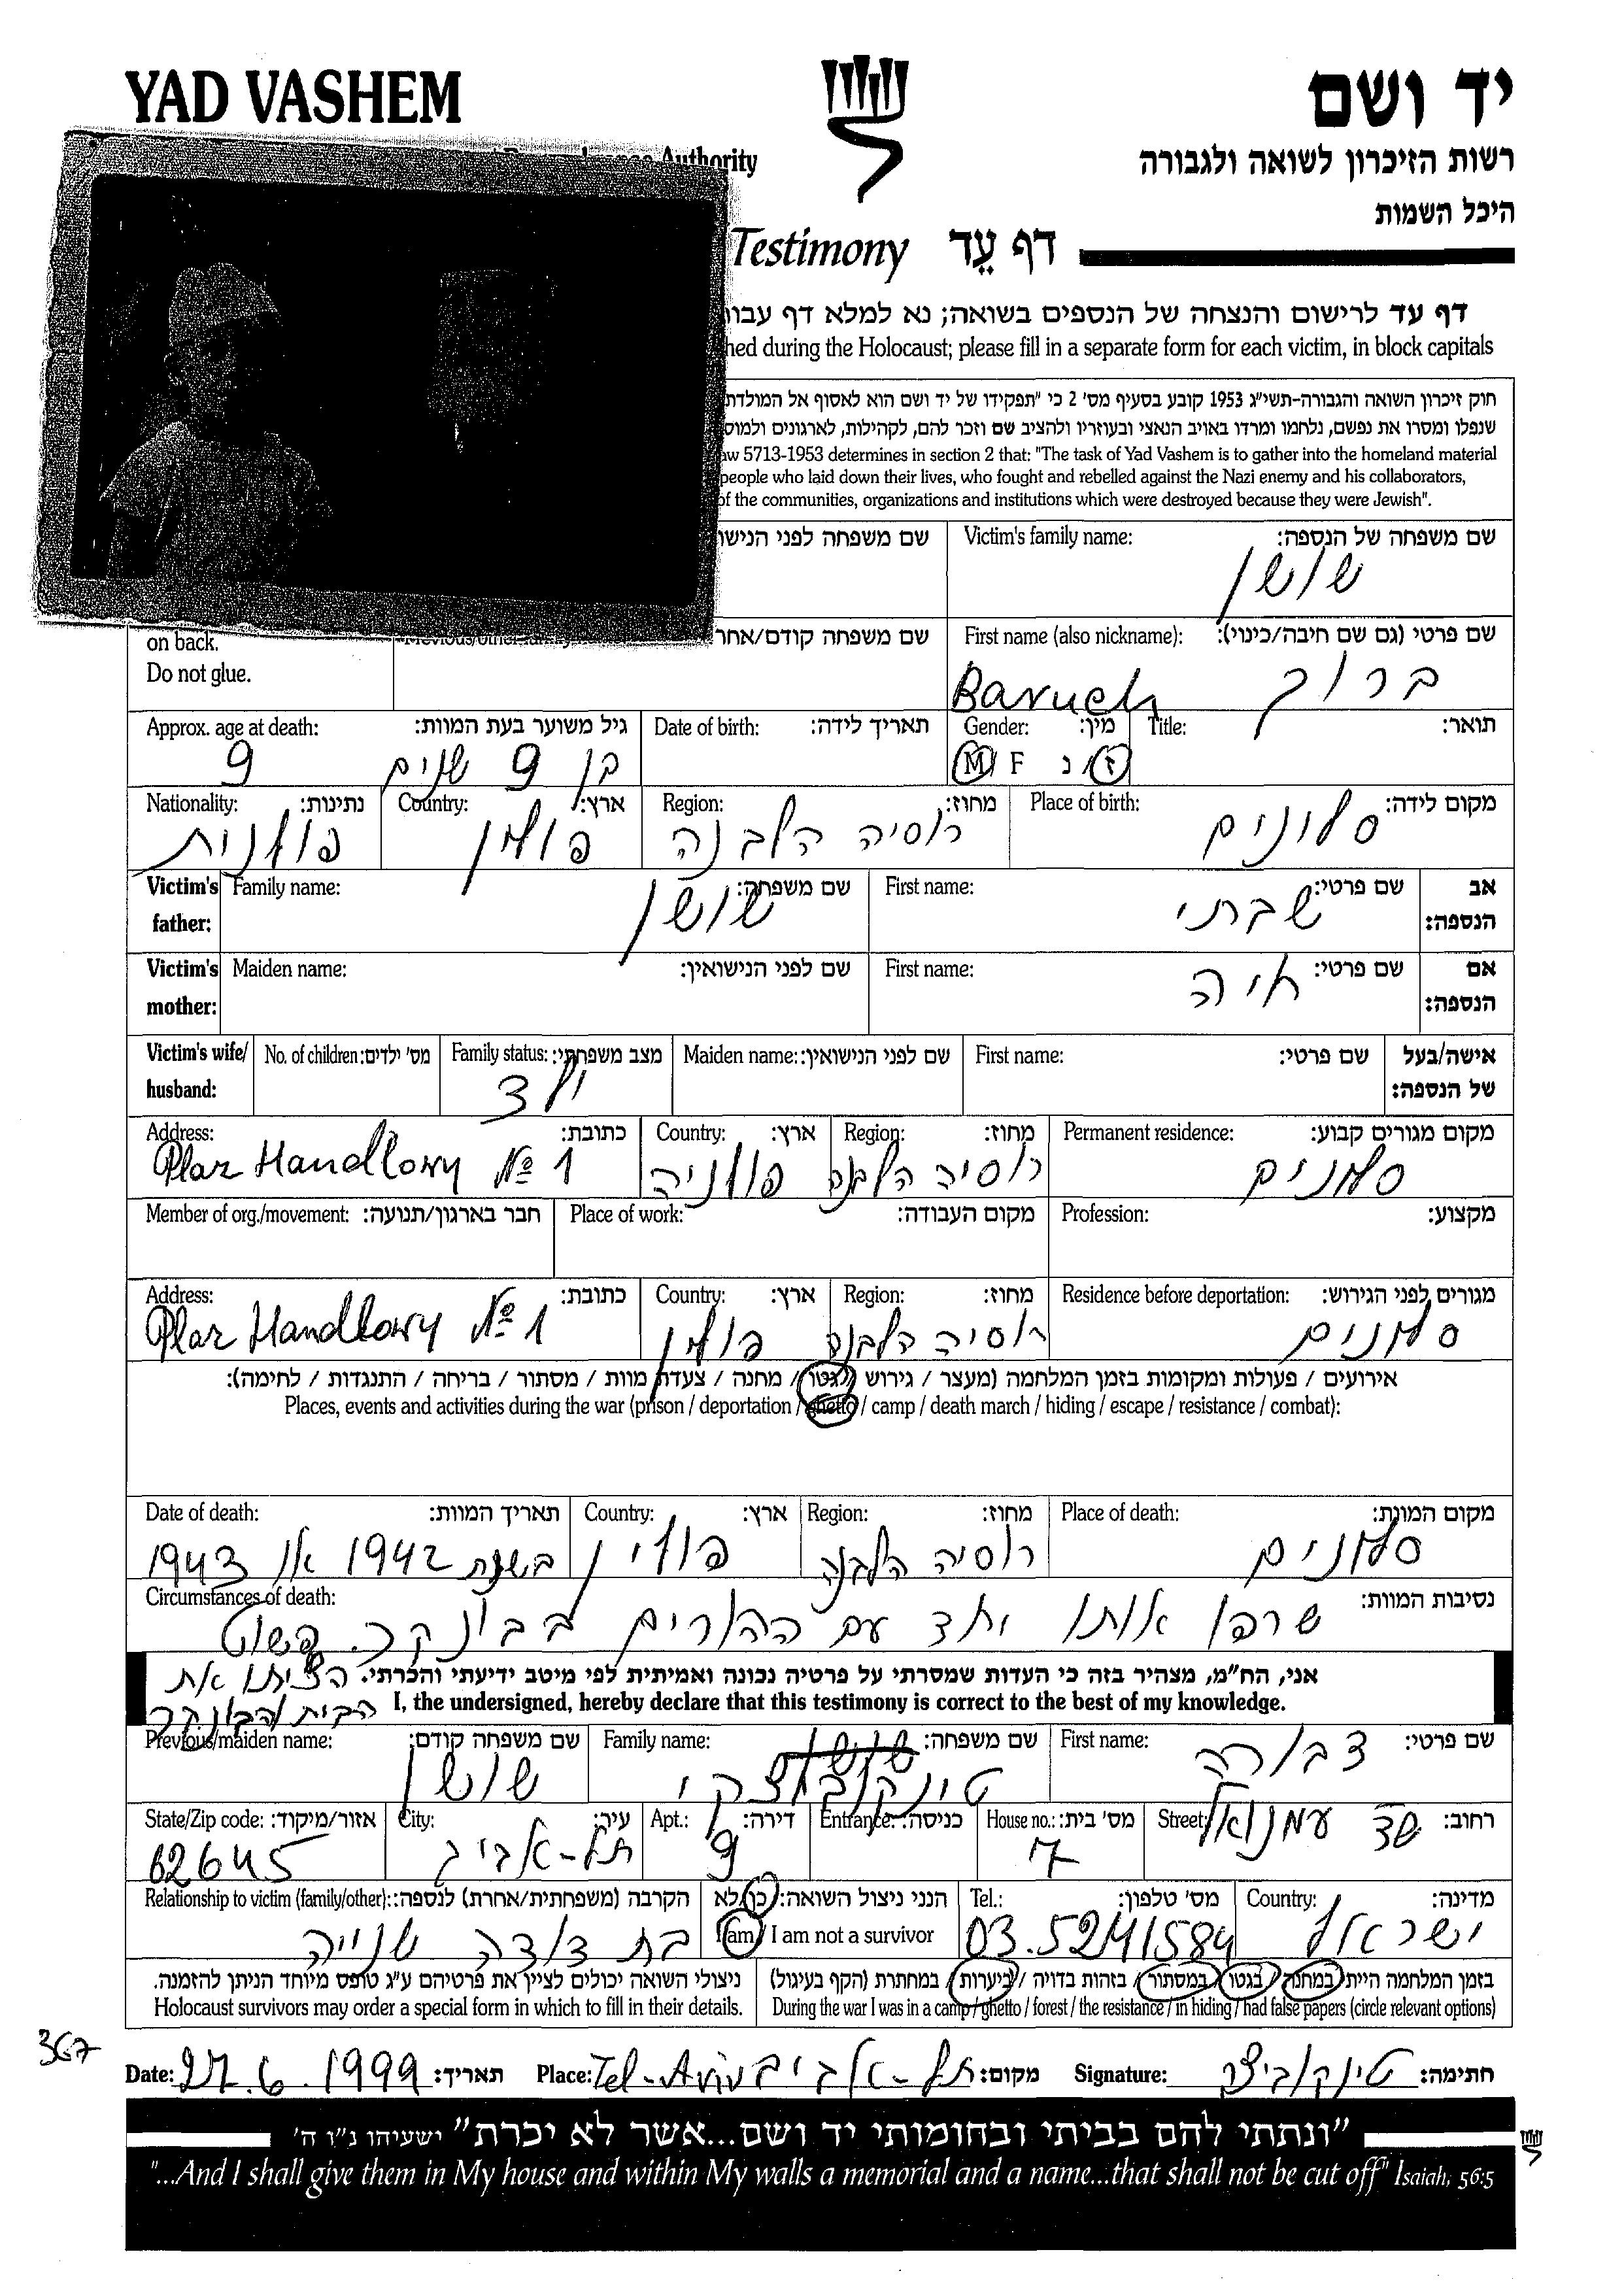 YAD VASHEM
יד ושם
Authority
רשות הזיכרון לשואה ולגבורה
היכל השמות
Testimony דף עֵד
דף עד לרישום והנצחה של הנספים בשואה; נא למלא דף
during the Holocaust; please fill in a separate form for each victim, in block capitals
חוק זיכרון השואה והגבורה-תשי״ג 1953 קובע בסעיף מס׳ 2 כי "תפקידו של יד ושם הוא לאסוף אל המולדת
שנפלו ומסרו את נפשם, נלחמו ומרדו באויב הנאצי ובעוזריו ולהציב שם וזכר להם, לקהילות, לארגונים
5713-1953 determines in section 2 that: "The task of Yad Vashem is to gather into the homeland material
people who laid down their lives, who fought and rebelled against the Nazi enemy and his collaborators,
of the communities, organizations and institutions which were destroyed because they were Jewish".
שם משפחה לפני
Victim's family name: שם משפחה של הנספה:
שושן
on back.
Do not glue.
שם משפחה קודם/אחר
First name (also nickname): שם פרטי (גם שם חיבה/כינוי):
Baruch ברוך
Approx. age at death: גיל משוער בעת המוות: Date of birth: תאריך לידה: Gender: מין: Title: תואר:
9 בן 9 שנים M F ז/נ
Nationality: נתינות: Country: ארץ: Region: מחוז: Place of birth: מקום לידה:
פולנית פולין רוסיה הלבנה סלונים
Victim's father: Family name: שם משפחה: First name: שם פרטי: אב הנספה:
שושן שבתי
Victim's mother: Maiden name: שם לפני הנישואין: First name: שם פרטי: אם הנספה:
חיה
Victim's wife/husband: No. of children: מס׳ ילדים: Family status: מצב משפחתי: Maiden name: שם לפני הנישואין: First name: שם פרטי: אישה/בעל של הנספה:
ילד
Address: כתובת: Country: ארץ: Region: מחוז: Permanent residence: מקום מגורים קבוע:
Plaz Handlowy № 1 פולניה רוסיה הלבנה סלונים
Member of org./movement: חבר בארגון/תנועה: Place of work: מקום העבודה: Profession: מקצוע:
Address: כתובת: Country: ארץ: Region: מחוז: Residence before deportation: מגורים לפני הגירוש:
Plaz Handlowy № 1 פולין רוסיה הלבנה סלונים
אירועים / פעולות ומקומות בזמן המלחמה (מעצר / גירוש / גטו / מחנה / צעדת מוות / מסתור / בריחה / התנגדות / לחימה):
Places, events and activities during the war (prison / deportation / ghetto / camp / death march / hiding / escape / resistance / combat):
Date of death: תאריך המוות: Country: ארץ: Region: מחוז: Place of death: מקום המוות:
בשנת 1942 או 1943 פולין רוסיה הלבנה סלונים
Circumstances of death: נסיבות המוות:
שרפו אותו יחד עם ההורים בבונקר. פשוט
הציתו את
הבית והבונקר
אני, הח״מ, מצהיר בזה כי העדות שמסרתי על פרטיה נכונה ואמיתית לפי מיטב ידיעתי והכרתי.
I, the undersigned, hereby declare that this testimony is correct to the best of my knowledge.
Previous/maiden name: שם משפחה קודם: Family name: שם משפחה: First name: שם פרטי:
שושן דבורה
State/Zip code: אזור/מיקוד: City: עיר: Apt.: דירה: Entrance: כניסה: House no.: מס׳ בית: Street: רחוב:
62645 תל-אביב 9 7 שד עמנואל
Relationship to victim (family/other): הקרבה (משפחתית/אחרת) לנספה: הנני ניצול השואה: כן/לא Tel.: מס׳ טלפון: Country: מדינה:
I am/ I am not a survivor
בת דודה שנייה 03.5241584 ישראל
ניצולי השואה יכולים לציין את פרטיהם ע״ג טופס מיוחד הניתן להזמנה.
Holocaust survivors may order a special form in which to fill in their details.
בזמן המלחמה הייתי במחנה/ בגטו/ במסתור/ בזהות בדויה / ביערות/ במחתרת (הקף בעיגול)
During the war I was in a camp / ghetto / forest / the resistance / in hiding / had false papers (circle relevant options)
367
Date: 27.6.1999 תאריך: Place: Tel-Aviv תל-אביב מקום: Signature: חתימה:
"ונתתי להם בביתי ובחומותי יד ושם...אשר לא יכרת" ישעיהו נ״ו ה׳
"...And I shall give them in My house and within My walls a memorial and a name...that shall not be cut off" Isaiah, 56:5